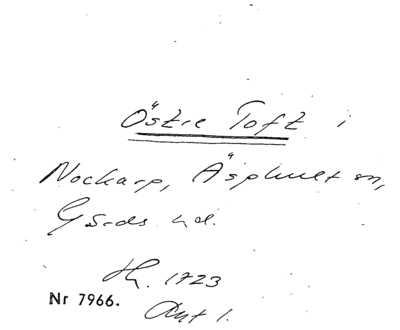 Östre Toft i
Nockarp, Äsphult sn,
Gärds hd.
Hr. 1723
Nr 7966.
Ant 1.